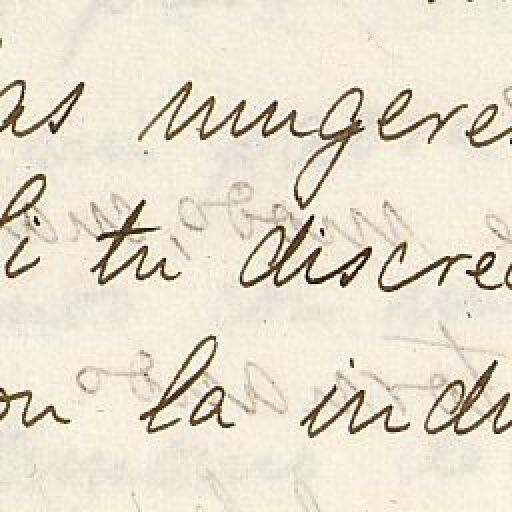 as mugeres
li tu discrec
on la indu